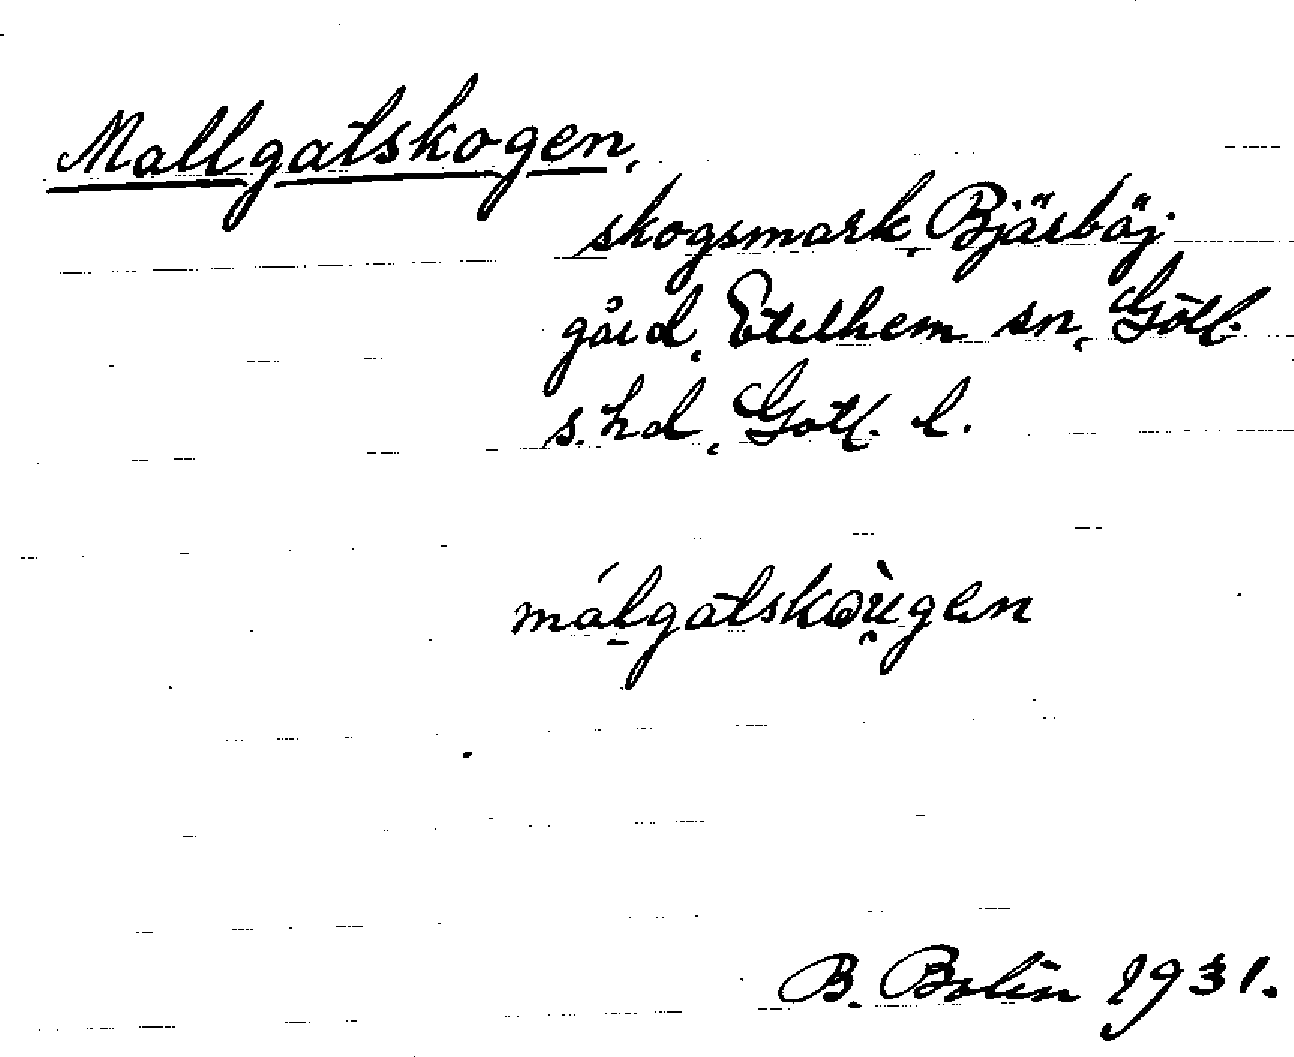 Mallgatskogen,
skogsmark, Bjärbäj
gård, Etelhem sn, Gotl.
s. hd, Gotl. l.
málgatskoùgen
B. Bolin 1931.